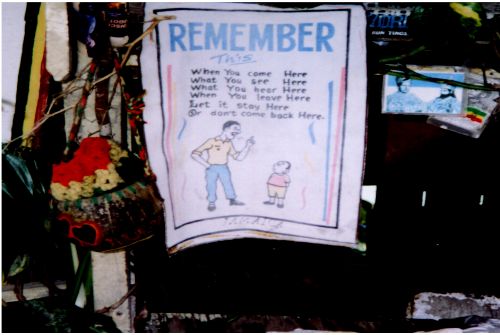 REMEMBER
This
When You come Here
What You see Here
What You hear Here
When You leave Here
Let it stay Here
Or don't come back Here.
JAMAICA